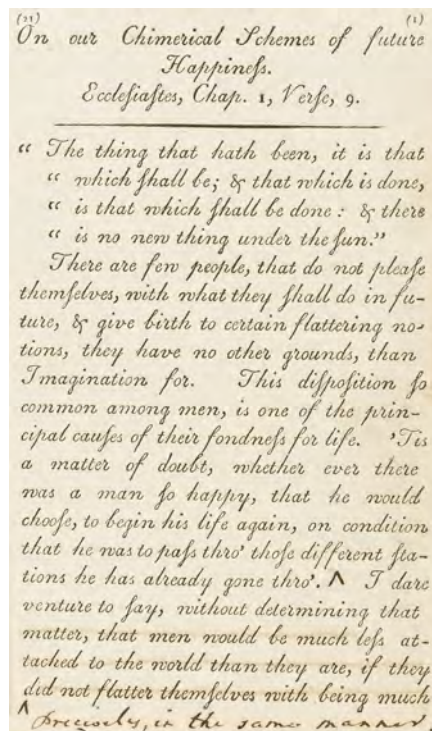 (21) (1)
On our Chimerical Schemes of future
Happineſs.
Eccleſiaſtes, Chap. 1, Verſe, 9.
“ The thing that hath been, it is that
“ which ſhall be; & that which is done,
“ is that which ſhall be done: & there
“ is no new thing under the ſun.”
There are few people, that do not pleaſe
themſelves, with what they ſhall do in fu-
ture, & give birth to certain flattering no-
tions, they have no other grounds, than
Imagination for. This diſpoſition ſo
common among men, is one of the prin-
cipal cauſes of their fondneſs for life. 'Tis
a matter of doubt, whether ever there
was a man ſo happy, that he would
chooſe, to begin his life again, on condition
that he was to paſs thro' thoſe different ſta-
tions he has already gone thro'. ^ I dare
venture to ſay, without determining that
matter, that men would be much leſs at-
tached to the world than they are, if they
did not flatter themſelves with being much
^ preciſely, in the same manner,